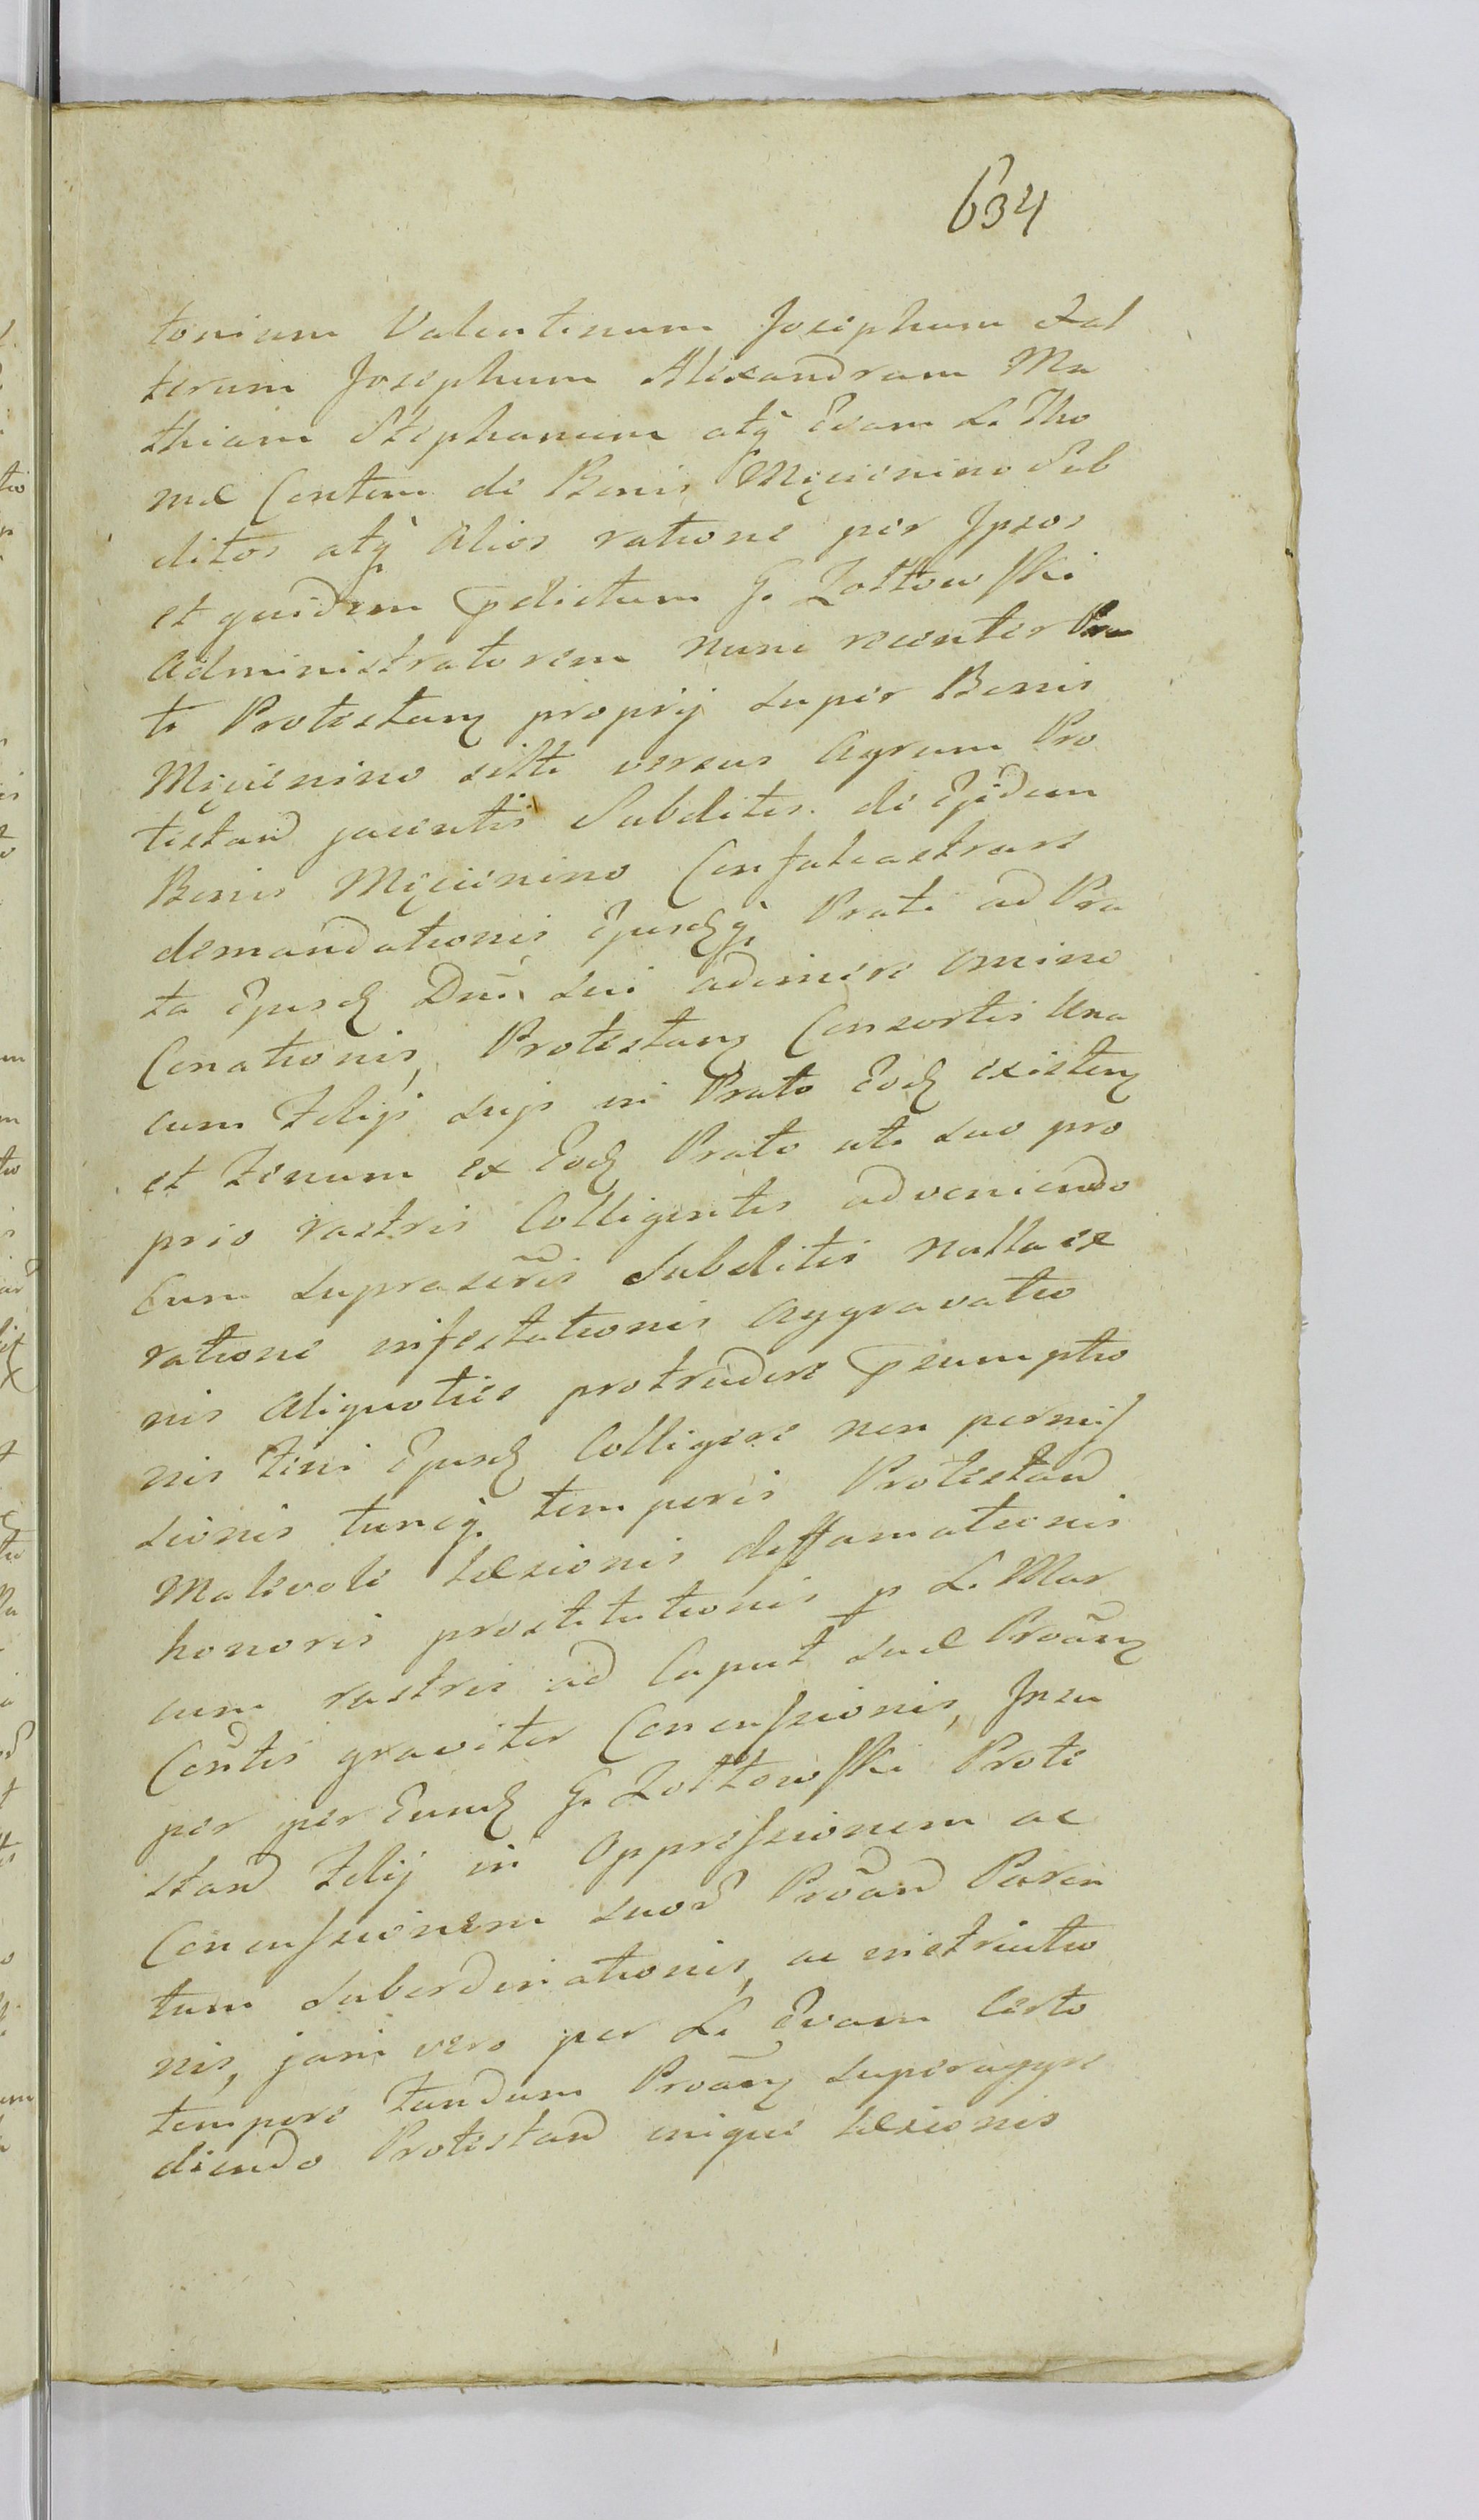 634
tonium Valentinum Josephum et al
terum Josephum Alexandrum Ma
thiam Stephanum atq̀ Evam L. Tho
mæ Contem de Bonis Męcienino Sub
ditos atq̀ alios ratione per Ipsos
et quidem pdictum G. Zołtowski
Administratorem nunc recenter Pra
ti Protestanꝫ proprij super Bonis
Męcienino siti versus Agrum Pro
testand jacentis Subditis de Ejsdem
Bonis Męcienino falcastrare
demandationis Ejusdꝫq̀ Prati ad Pra
ta Ejusdꝫ Dni sui adimere omino
Conationis, Protestanꝫ Consortis Una
cum Filijs suis in Prato Eodꝫ existenꝫ
et Fenum ex Eodꝫ Prato uti suo pro
prio rastris Colligentis adveniendo
Cum suprascris Subditis nulla ex
ratione infestationis Aggravatio
nis aliquoties protrudere psumptio
nis Feni Ejusdꝫ Colligere non permis
sionis tuncq̀ temporis Protestand
Malevole læsionis diffamationis
honoris prostitutionis p L. Mar
cum rastris ad Caput suæ Proãnꝫ
Contis graviter Concussionis, Insu
per per Eundꝫ G. Zołtowski Prote
stand Filij in Oppressionem ac
Concussionem suor Proãnd Paren
tum subordinationis, ac instructio
nis, jam vero per L. Evam Certo
tempore tandum Proãnꝫ superaggre
diendo Protestand inique læsionis